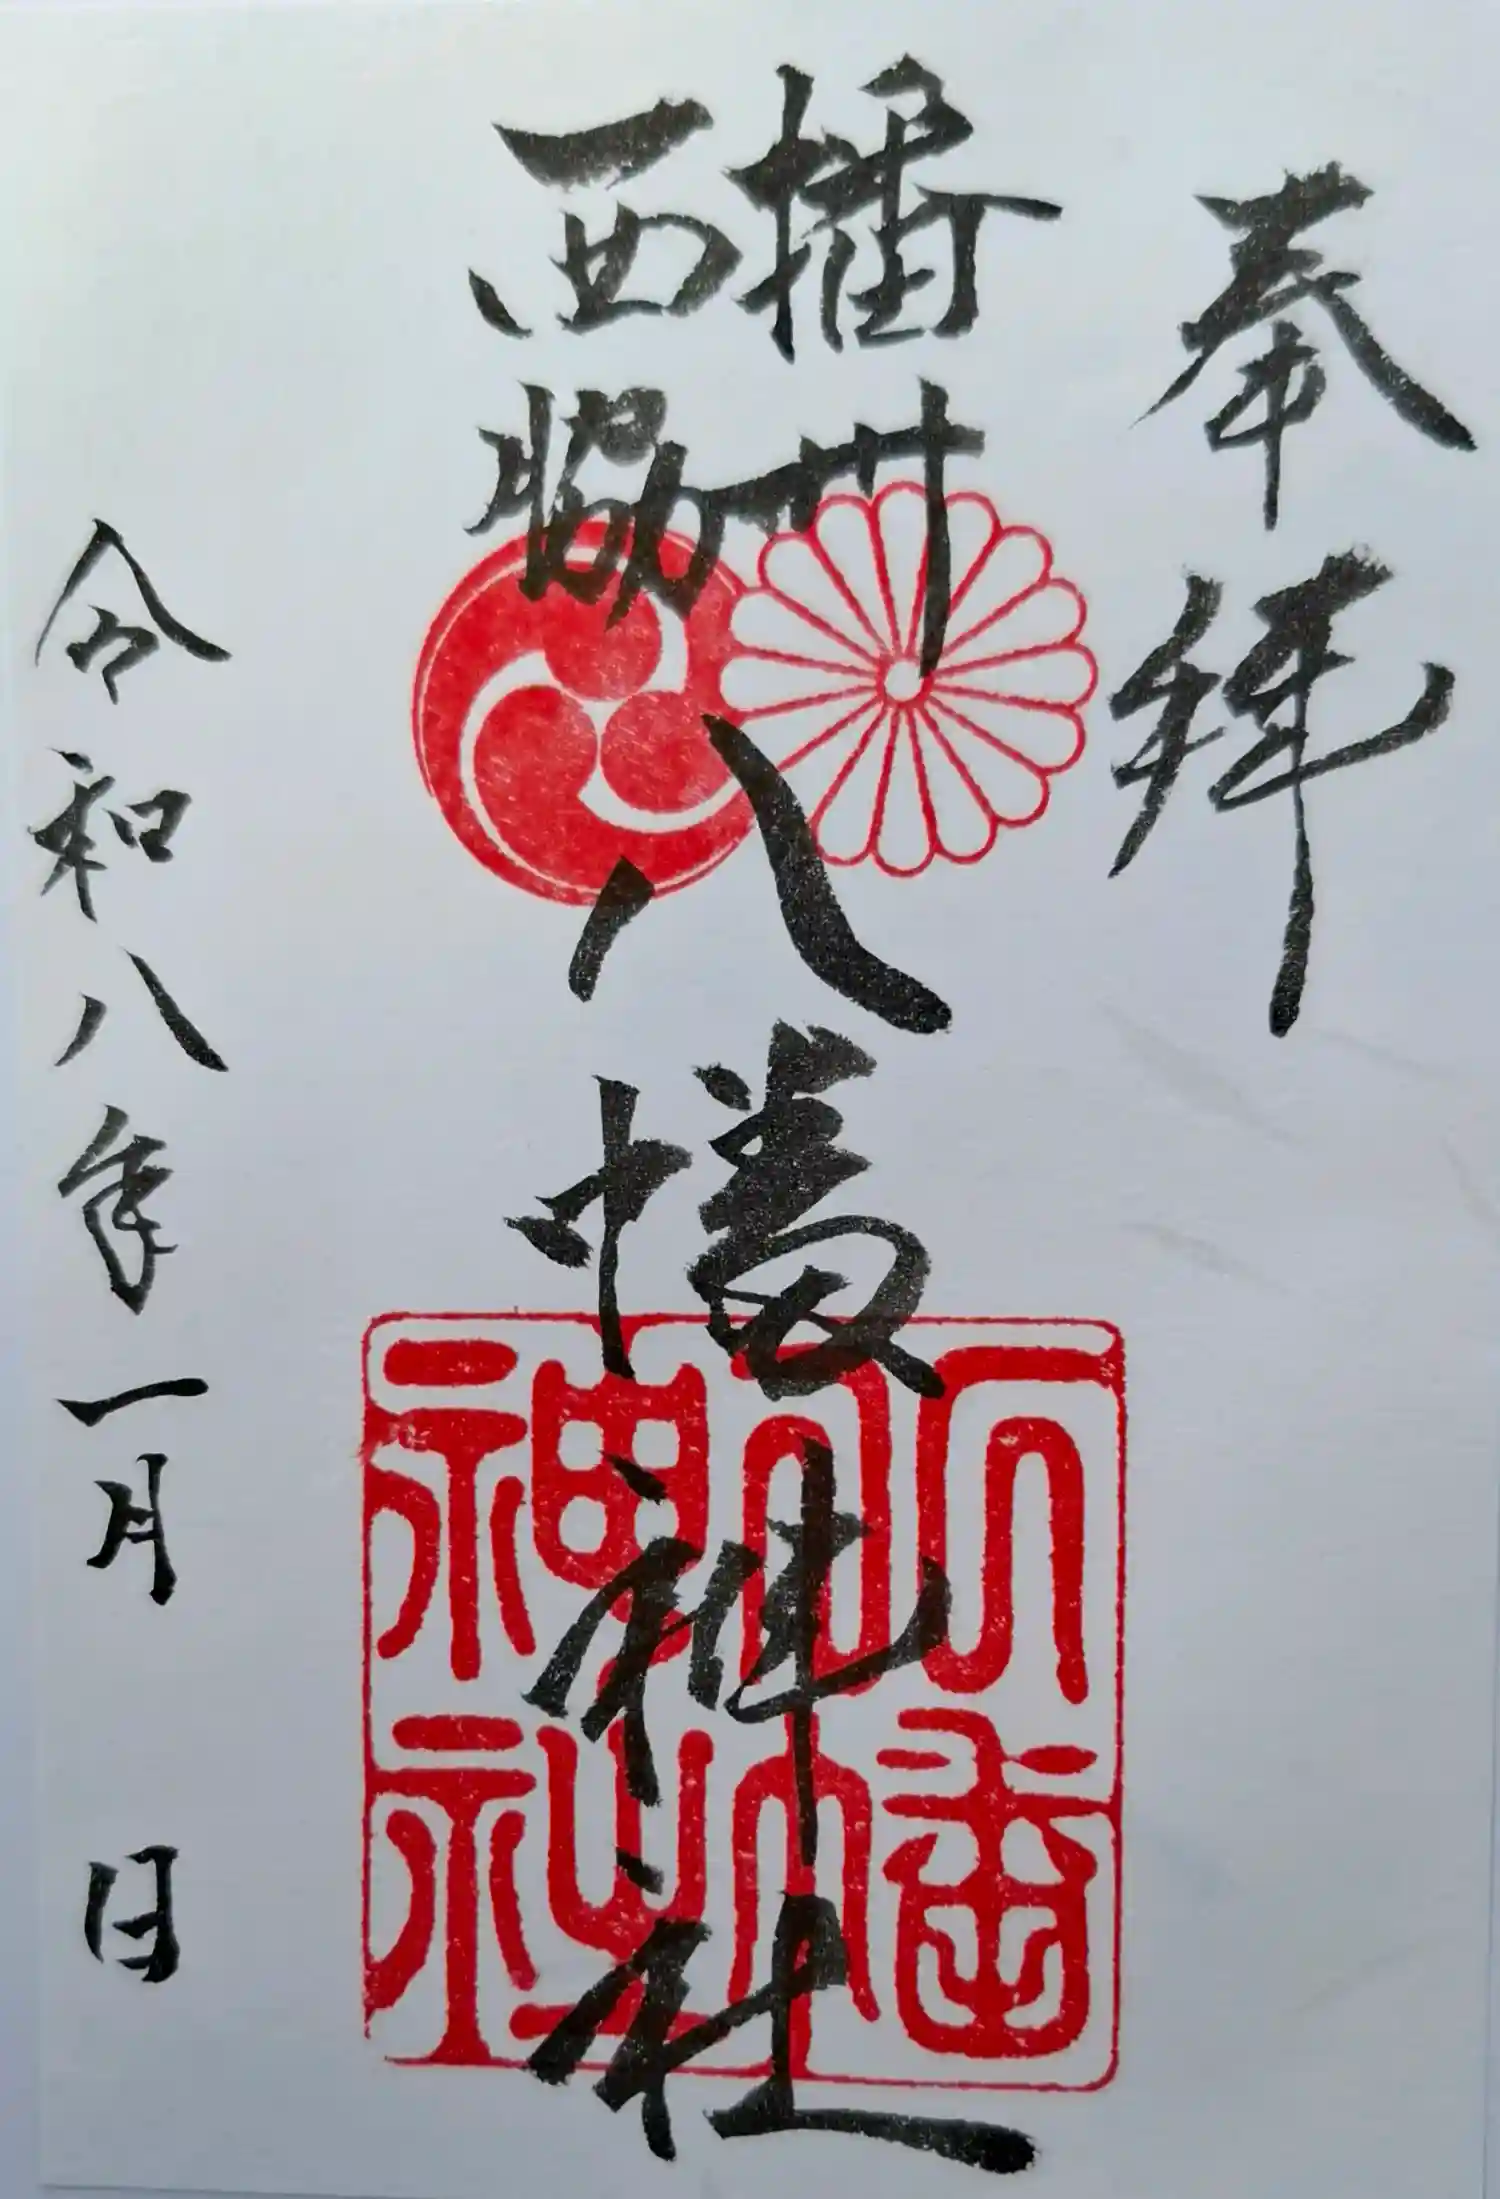 奉拝
播州
西脇
八幡神社
八幡
神社
令和八年一月　日